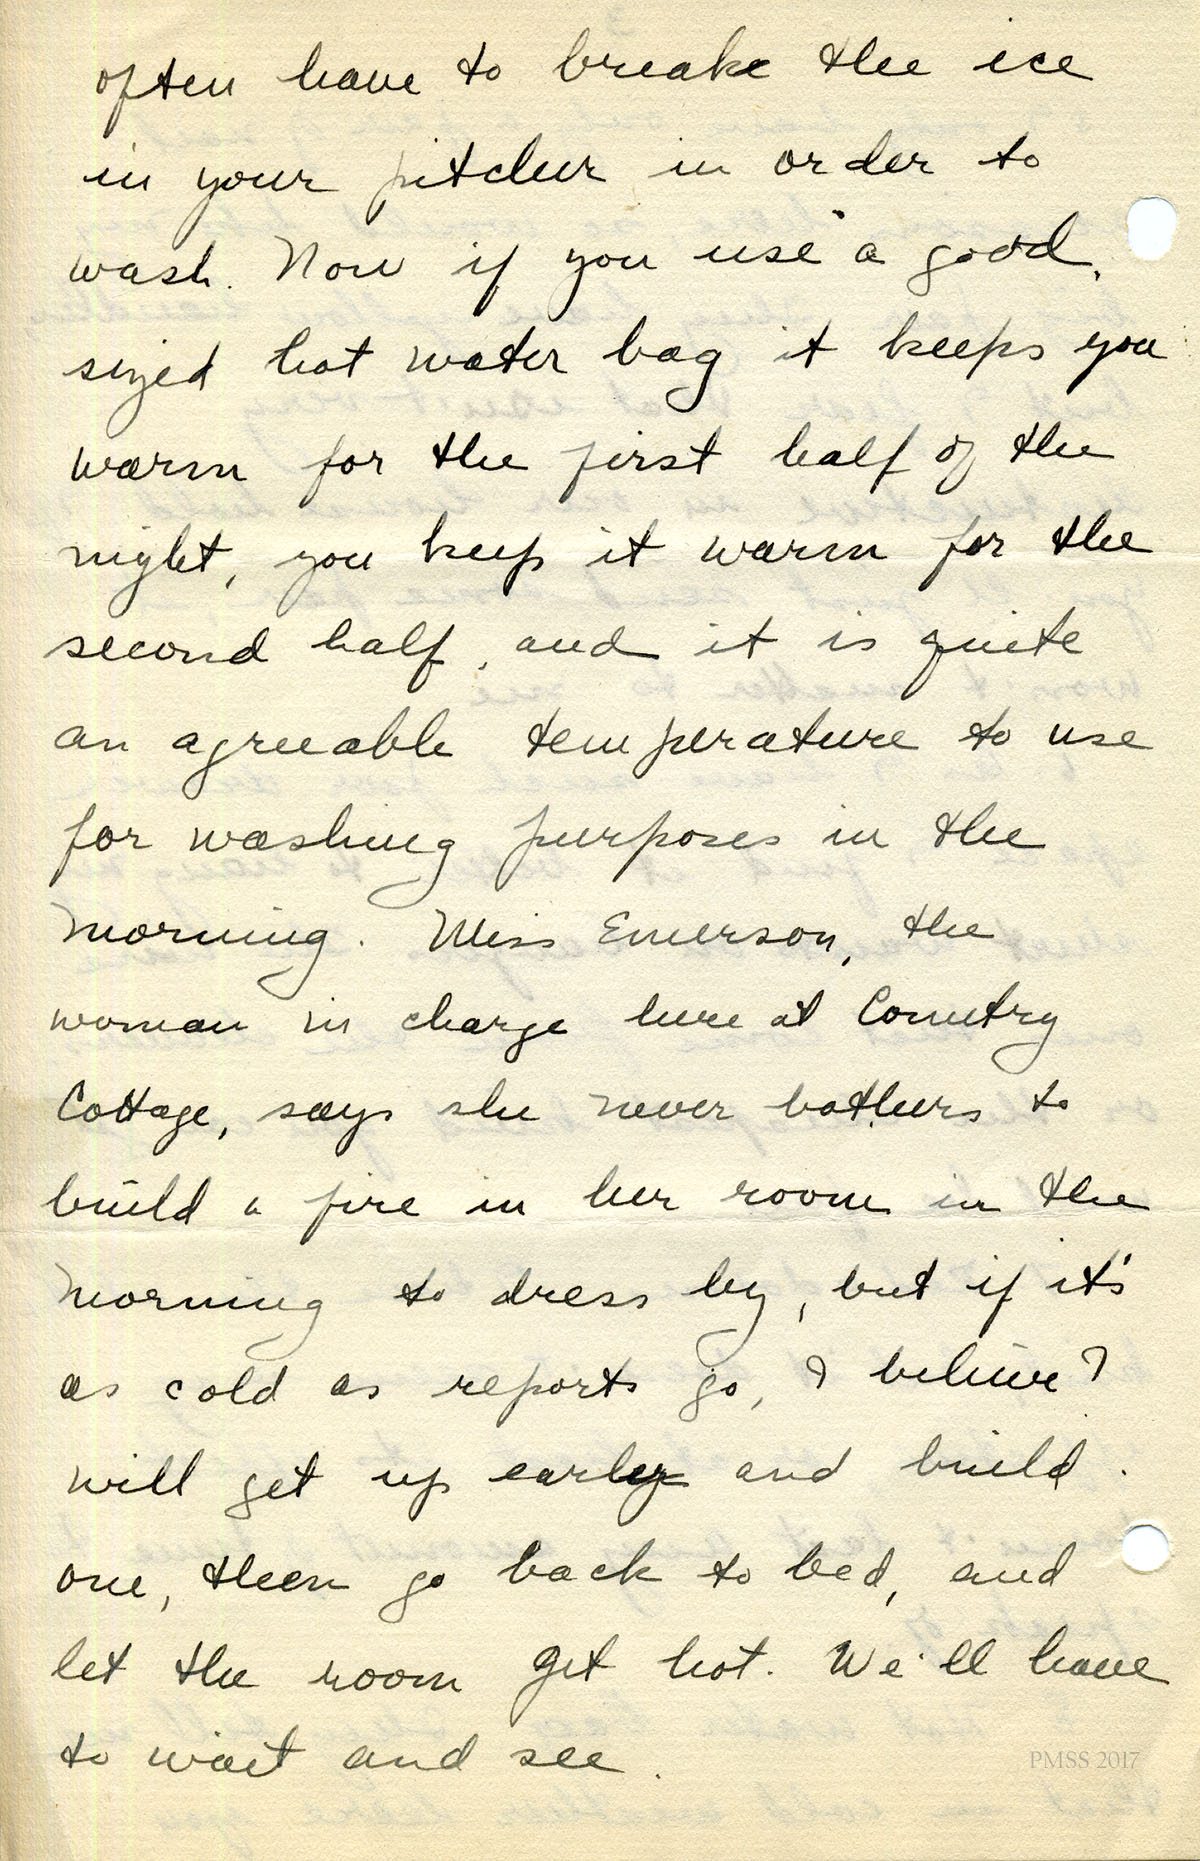 often have to breake the ice
in your pitcher in order to
wash. Now if you use a good
sized hot water bag it keeps you
warm for the first half of the
night, you keep it warm for the
second half, and it is quite
an agreeable temperature to use
for washing purposes in the
morning. Miss Emerson, the
woman in charge here at Country
Cottage, says she never bothers to
build a fire in her room in the
morning to dress by, but if it's
as cold as reports go, I believe I
will get up early and build
one, then go back to bed, and
let the room get hot. We'll have
to wait and see.
PMSS 2017